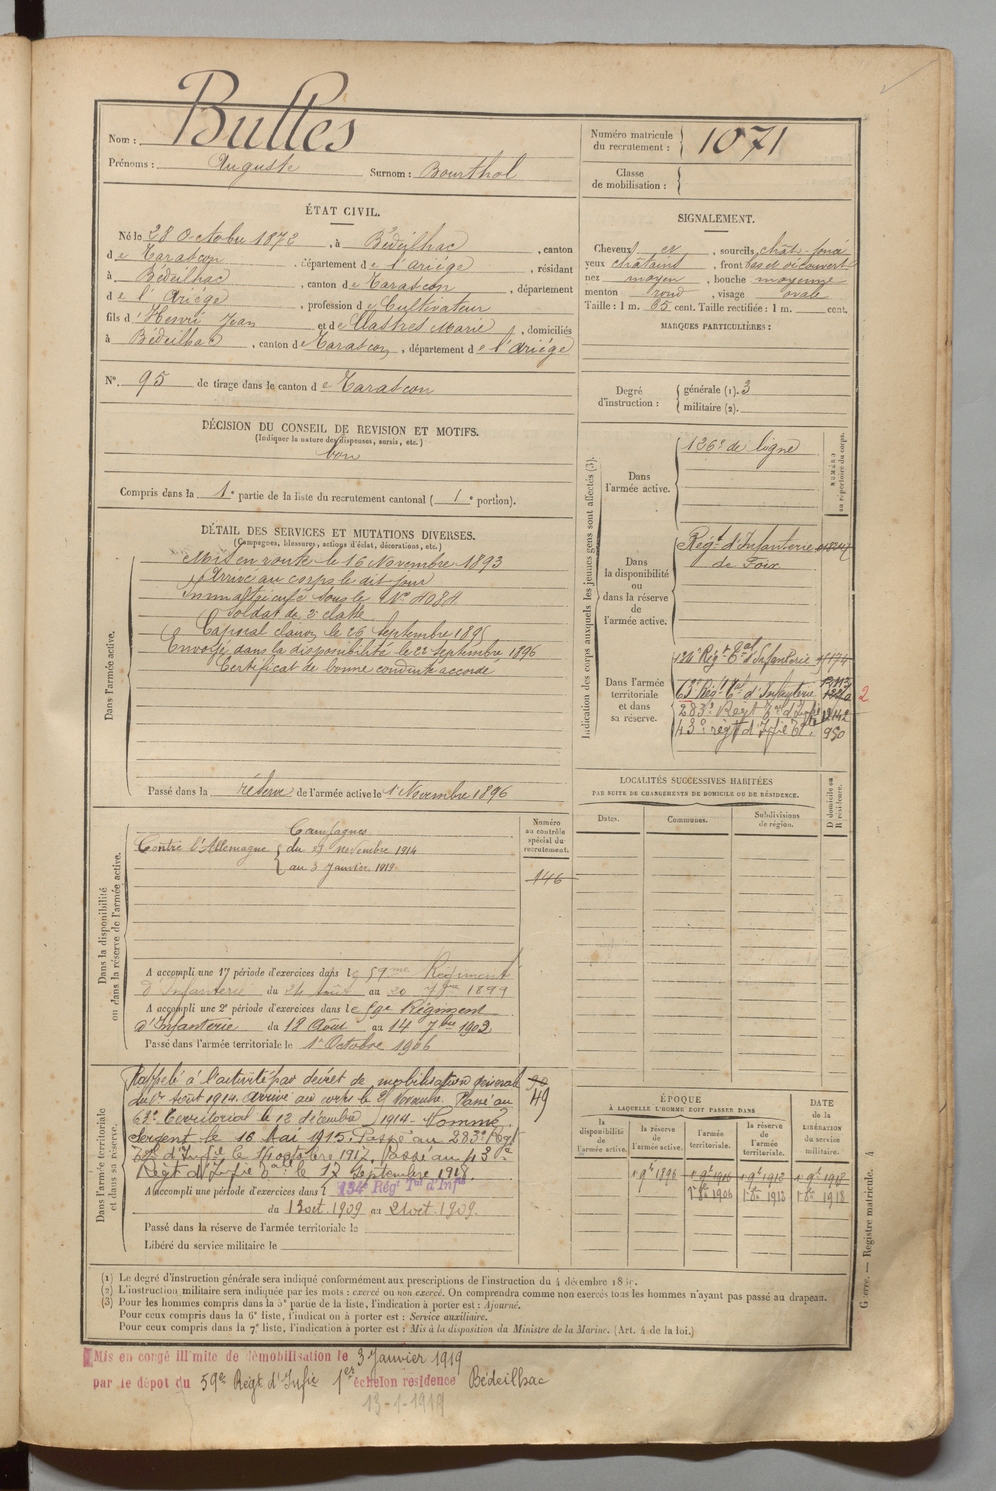 Nom : Bulles
Prénoms : Auguste Surnom : Bourthol
Numéro matricule du recrutement : 1071
Classe de mobilisation :
ÉTAT CIVIL.
Né le 28 Octobre 1872, à Bédeilhac, canton
de Tarascon, département de l'Ariége, résidant
à Bédeilhac, canton de Tarascon, département
de l'Ariége, profession de Cultivateur
fils d' Henri Jean et de Clastres Marie, domiciliés
à Bédeilhac, canton de Tarascon, département de l'Ariége
N°. 95 de tirage dans le canton de Tarascon
SIGNALEMENT.
Cheveux et, sourcils chât-foncé
yeux châtains, front bas et découvert
nez moyen, bouche moyenne
menton rond, visage ovale
Taille : 1 m. 65 cent. Taille rectifiée : 1 m. cent.
MARQUES PARTICULIÈRES :
Degré d'instruction : générale (1). 3
militaire (2).
DÉCISION DU CONSEIL DE REVISION ET MOTIFS.
(Indiquer la nature des dispenses, sursis, etc.)
bon
Compris dans la 1e partie de la liste du recrutement cantonal (1e portion).
DÉTAIL DES SERVICES ET MUTATIONS DIVERSES.
(Campagnes, blessures, actions d'éclat, décorations, etc.)
Dans l'armée active.
Mis en route le 16 Novembre 1893
Arrivé au corps le dit jour
Immatriculé sous le N° 4084
Soldat de 2e classe
Caporal clairon le 26 Septembre 1895
Envoyé dans la disponibilité le 22 Septembre 1896
Certificat de bonne conduite accordé
Passé dans la réserve de l'armée active le 1 Novembre 1896
Indication des corps auxquels les jeunes gens sont affectés (3).
NUMÉRO au répertoire du corps.
Dans l'armée active.
126e de ligne
Dans la disponibilité ou dans la réserve de l'armée active.
Régt d'Infanterie
de Foix
Dans l'armée territoriale et dans sa réserve.
134e Régt Tal d'Infanterie
63e Régt Tal d'Infanterie
2
283e Régt Tal d'Infie
43e régt d'Infie Tle 950
LOCALITÉS SUCCESSIVES HABITÉES
PAR SUITE DE CHANGEMENTS DE DOMICILE OU DE RÉSIDENCE.
D domicile ou R résidence.
Dates. Communes. Subdivisions de région.
Dans la disponibilité ou dans la réserve de l'armée active.
Numéro au contrôle spécial du recrutement.
146
Campagnes
Contre l'Allemagne du 23 novembre 1914
au 3 Janvier 1919
A accompli une 1e période d'exercices dans le 59me Régiment
d'Infanterie du 24 Août au 20 7bre 1899
A accompli une 2e période d'exercices dans le 59e Régiment
d'Infanterie du 18 Août au 14 7bre 1902
Passé dans l'armée territoriale le 1er Octobre 1906
Dans l'armée territoriale et dans sa réserve.
49
Rappelé à l'activité par décret de mobilisation général
du 1er août 1914. Arrivé au corps le 23 Novembre. Passé au
63e Territorial le 12 décembre 1914. Nommé
Sergent le 16 Mai 1915. Passé au 283e Régt
Tal d'Infie le 1 octobre 1917. Passé au 43e
Régt d'Infie Tale le 17 Septembre 1918
A accompli une période d'exercices dans l 134e Régt Tal d'Infie
du 13 oct. 1909 au 21 oct. 1909.
Passé dans la réserve de l'armée territoriale le
Libéré du service militaire le
ÉPOQUE
À LAQUELLE L'HOMME DOIT PASSER DANS
DATE de la LIBÉRATION du service militaire.
la disponibilité de l'armée active. la réserve de l'armée active. l'armée territoriale. la réserve de l'armée territoriale.
1 9bre 1896 1 9bre 1906 1 9bre 1912 1 9bre 1918
1er 8bre 1906 1er 8bre 1913 1er 8bre 1918
(1) Le degré d'instruction générale sera indiqué conformément aux prescriptions de l'instruction du 4 décembre
(2) L'instruction militaire sera indiquée par les mots : exercé ou non exercé. On comprendra comme non exercés tous les hommes n'ayant pas passé au drapeau.
(3) Pour les hommes compris dans la 5e partie de la liste, l'indication à porter est : Ajourné.
Pour ceux compris dans la 6e liste, l'indication à porter est : Service auxiliaire.
Pour ceux compris dans la 7e liste, l'indication à porter est : Mis à la disposition du Ministre de la Marine. (Art. 4 de la loi.)
Guerre. — Registre matricule. 4
Mis en congé illimité de démobilisation le 3 Janvier 1919
par le dépôt du 59e Régt d'Infie 1er échelon résidence Bédeilhac
13-1-1919